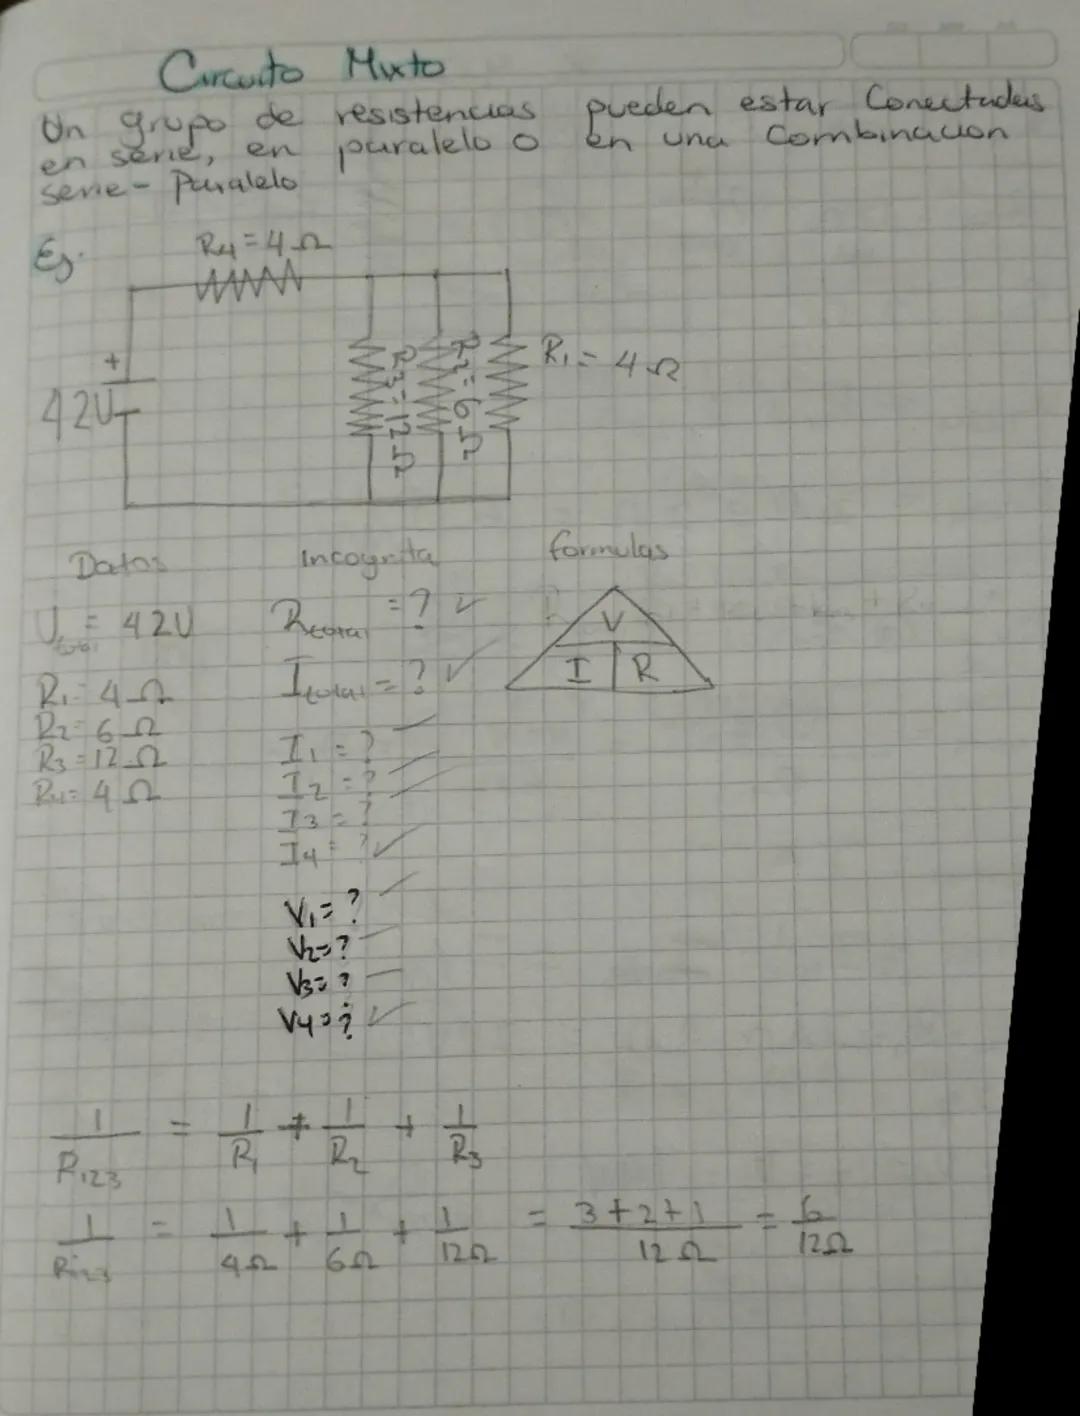 Circuito Mixto
Un grupo de resistencias pueden estar Conectadas
en serie, en paralelo o en una Combinacion
serie - Paralelo
Ej.
R4 = 4 Ω
+
42V
R3 = 12 Ω
R2 = 6 Ω
R1 = 4 Ω
Datos Incognita formulas
V total = 42V
R1 = 4 Ω
R2 = 6 Ω
R3 = 12 Ω
R4 = 4 Ω
Rtotal = ? ✓
Itotal = ? ✓
I1 = ?
I2 = ?
I3 = ?
I4 = ? ✓
V1 = ?
V2 = ?
V3 = ?
V4 = ? ✓
V
I R
1/R123 = 1/R1 + 1/R2 + 1/R3
1/R123 = 1/4Ω + 1/6Ω + 1/12Ω = 3+2+1/12Ω = 6/12Ω